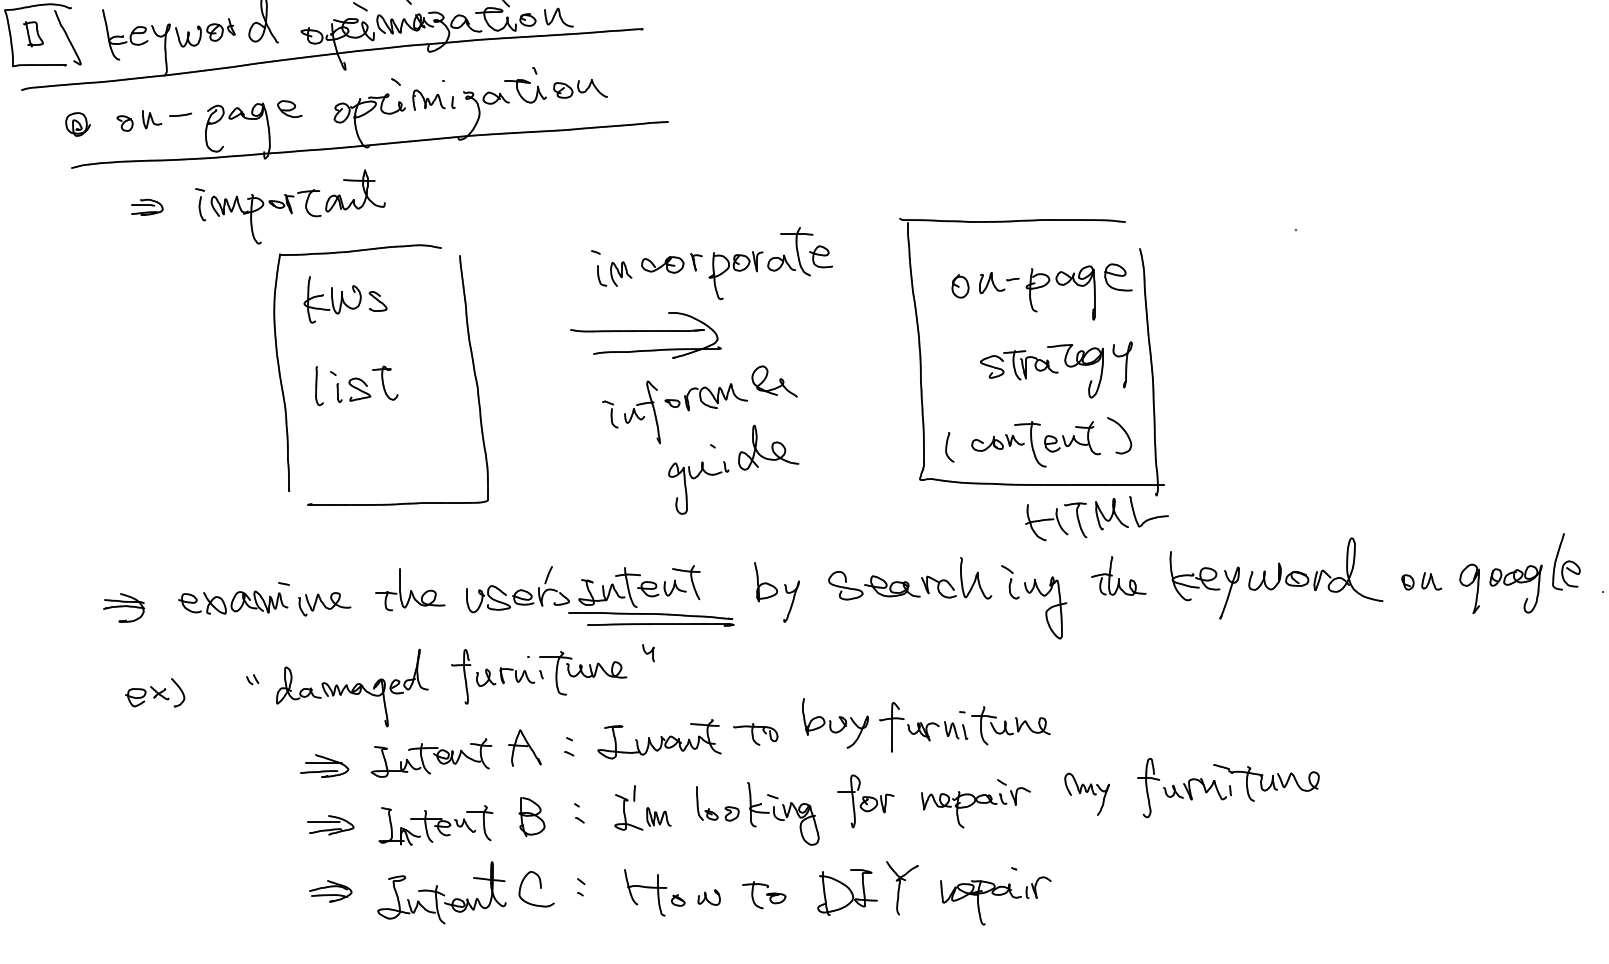 keyword optimization
on-page optimization
⇒ important
kws
list
incorporate
⇒
inform &
guide
on-page
strategy
(content)
HTML
⇒ examine the user's Intent by searching the keyword on google.
ex) "damaged furniture"
⇒ Intent A : I want to buy furniture
⇒ Intent B : I'm looking for repair my furniture
⇒ Intent C : How to DIY repair